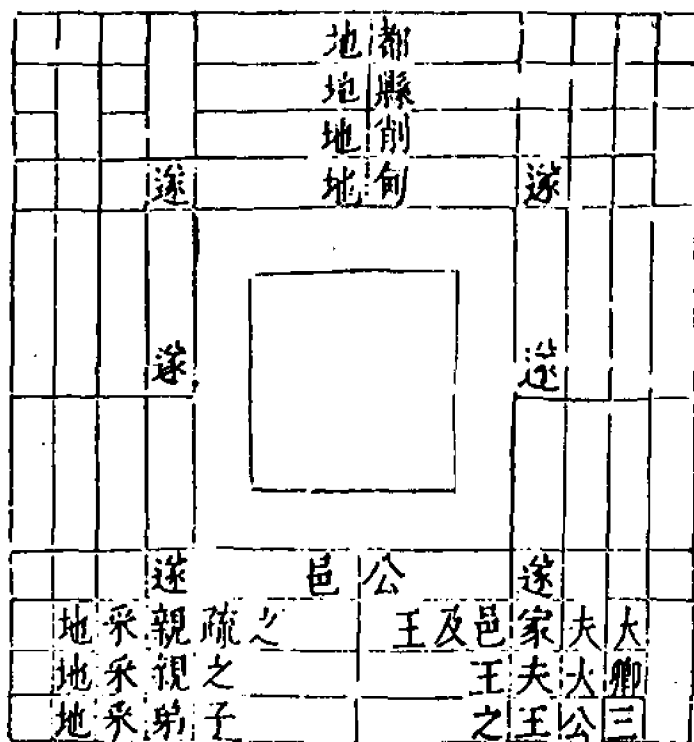 都地
縣地
削地
遂甸地遂
遂遂
遂公邑遂
大夫家邑及王之疏親采地
卿大夫王之視采地
三公王之子弟采地